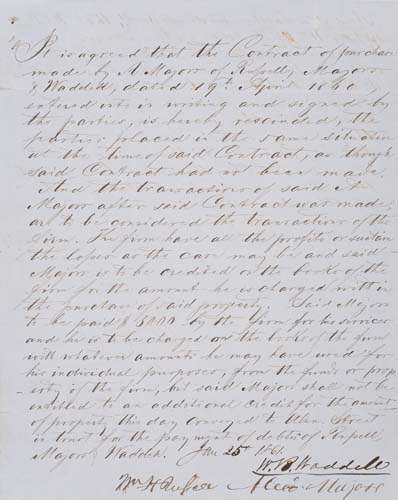 It is agreed that the Contract of purchase
made by A Majors of Russell, Majors
& Waddell, dated 19th April 1860,
entered into in writing and signed by
the parties, is hereby rescinded, the
parties placed in the same situation
at the time of said Contract, as though
said Contract had not been made.
And the transactions of said A
Majors after said Contract was made,
are to be considered the transactions of the
firm. The firm have all the profits or sustain
the losses as the case may be and said
Majors is to be credited on the books of the
firm for the amount he is charged with in
the purchase of said property. Said Majors
to be paid $5000 by the firm for his services
and he is to be charged on the books of the firm
with whatever amounts he may have used for
his individual purposes, from the funds or prop
erty of the firm, but said Majors shall not be
entitled to an additional credit for the amount
of property this day conveyed to Alex Street
in trust for the payment of debts of Russell
Majors & Waddell. Jan 25th 1861.
W. B. Waddell
Wm H Russell Alex Majors